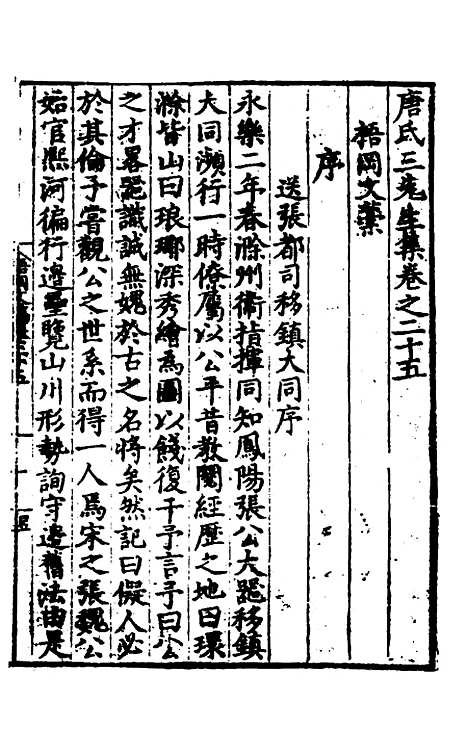 唐氏三先生集卷之二十五
梧岡文藁
序
送張都司移鎮大同序
永樂二年春滁州衞指揮同知鳳陽張公大器移鎮
大同瀕行一時僚屬以公平昔教閱經歷之地曰環
滁皆山曰琅琊深秀繪為圖以餞復干予言予曰公
之才畧器識誠無媿於古之名將矣然記曰儗人必
於其倫予嘗觀公之世系而得一人焉宋之張魏公
始官熙河徧行邊壘覽山川形勢詢守邊舊法由是